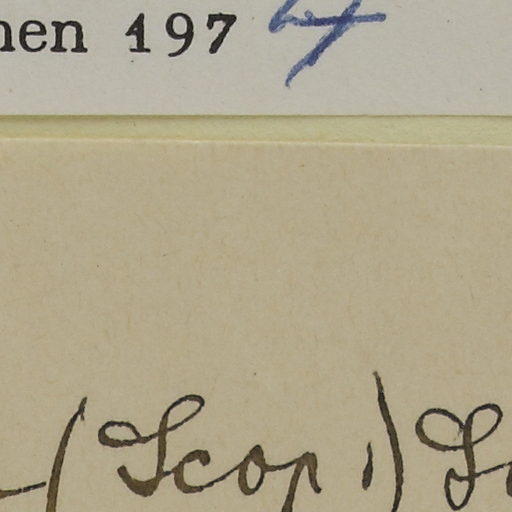 nen 1974
(Scop.)